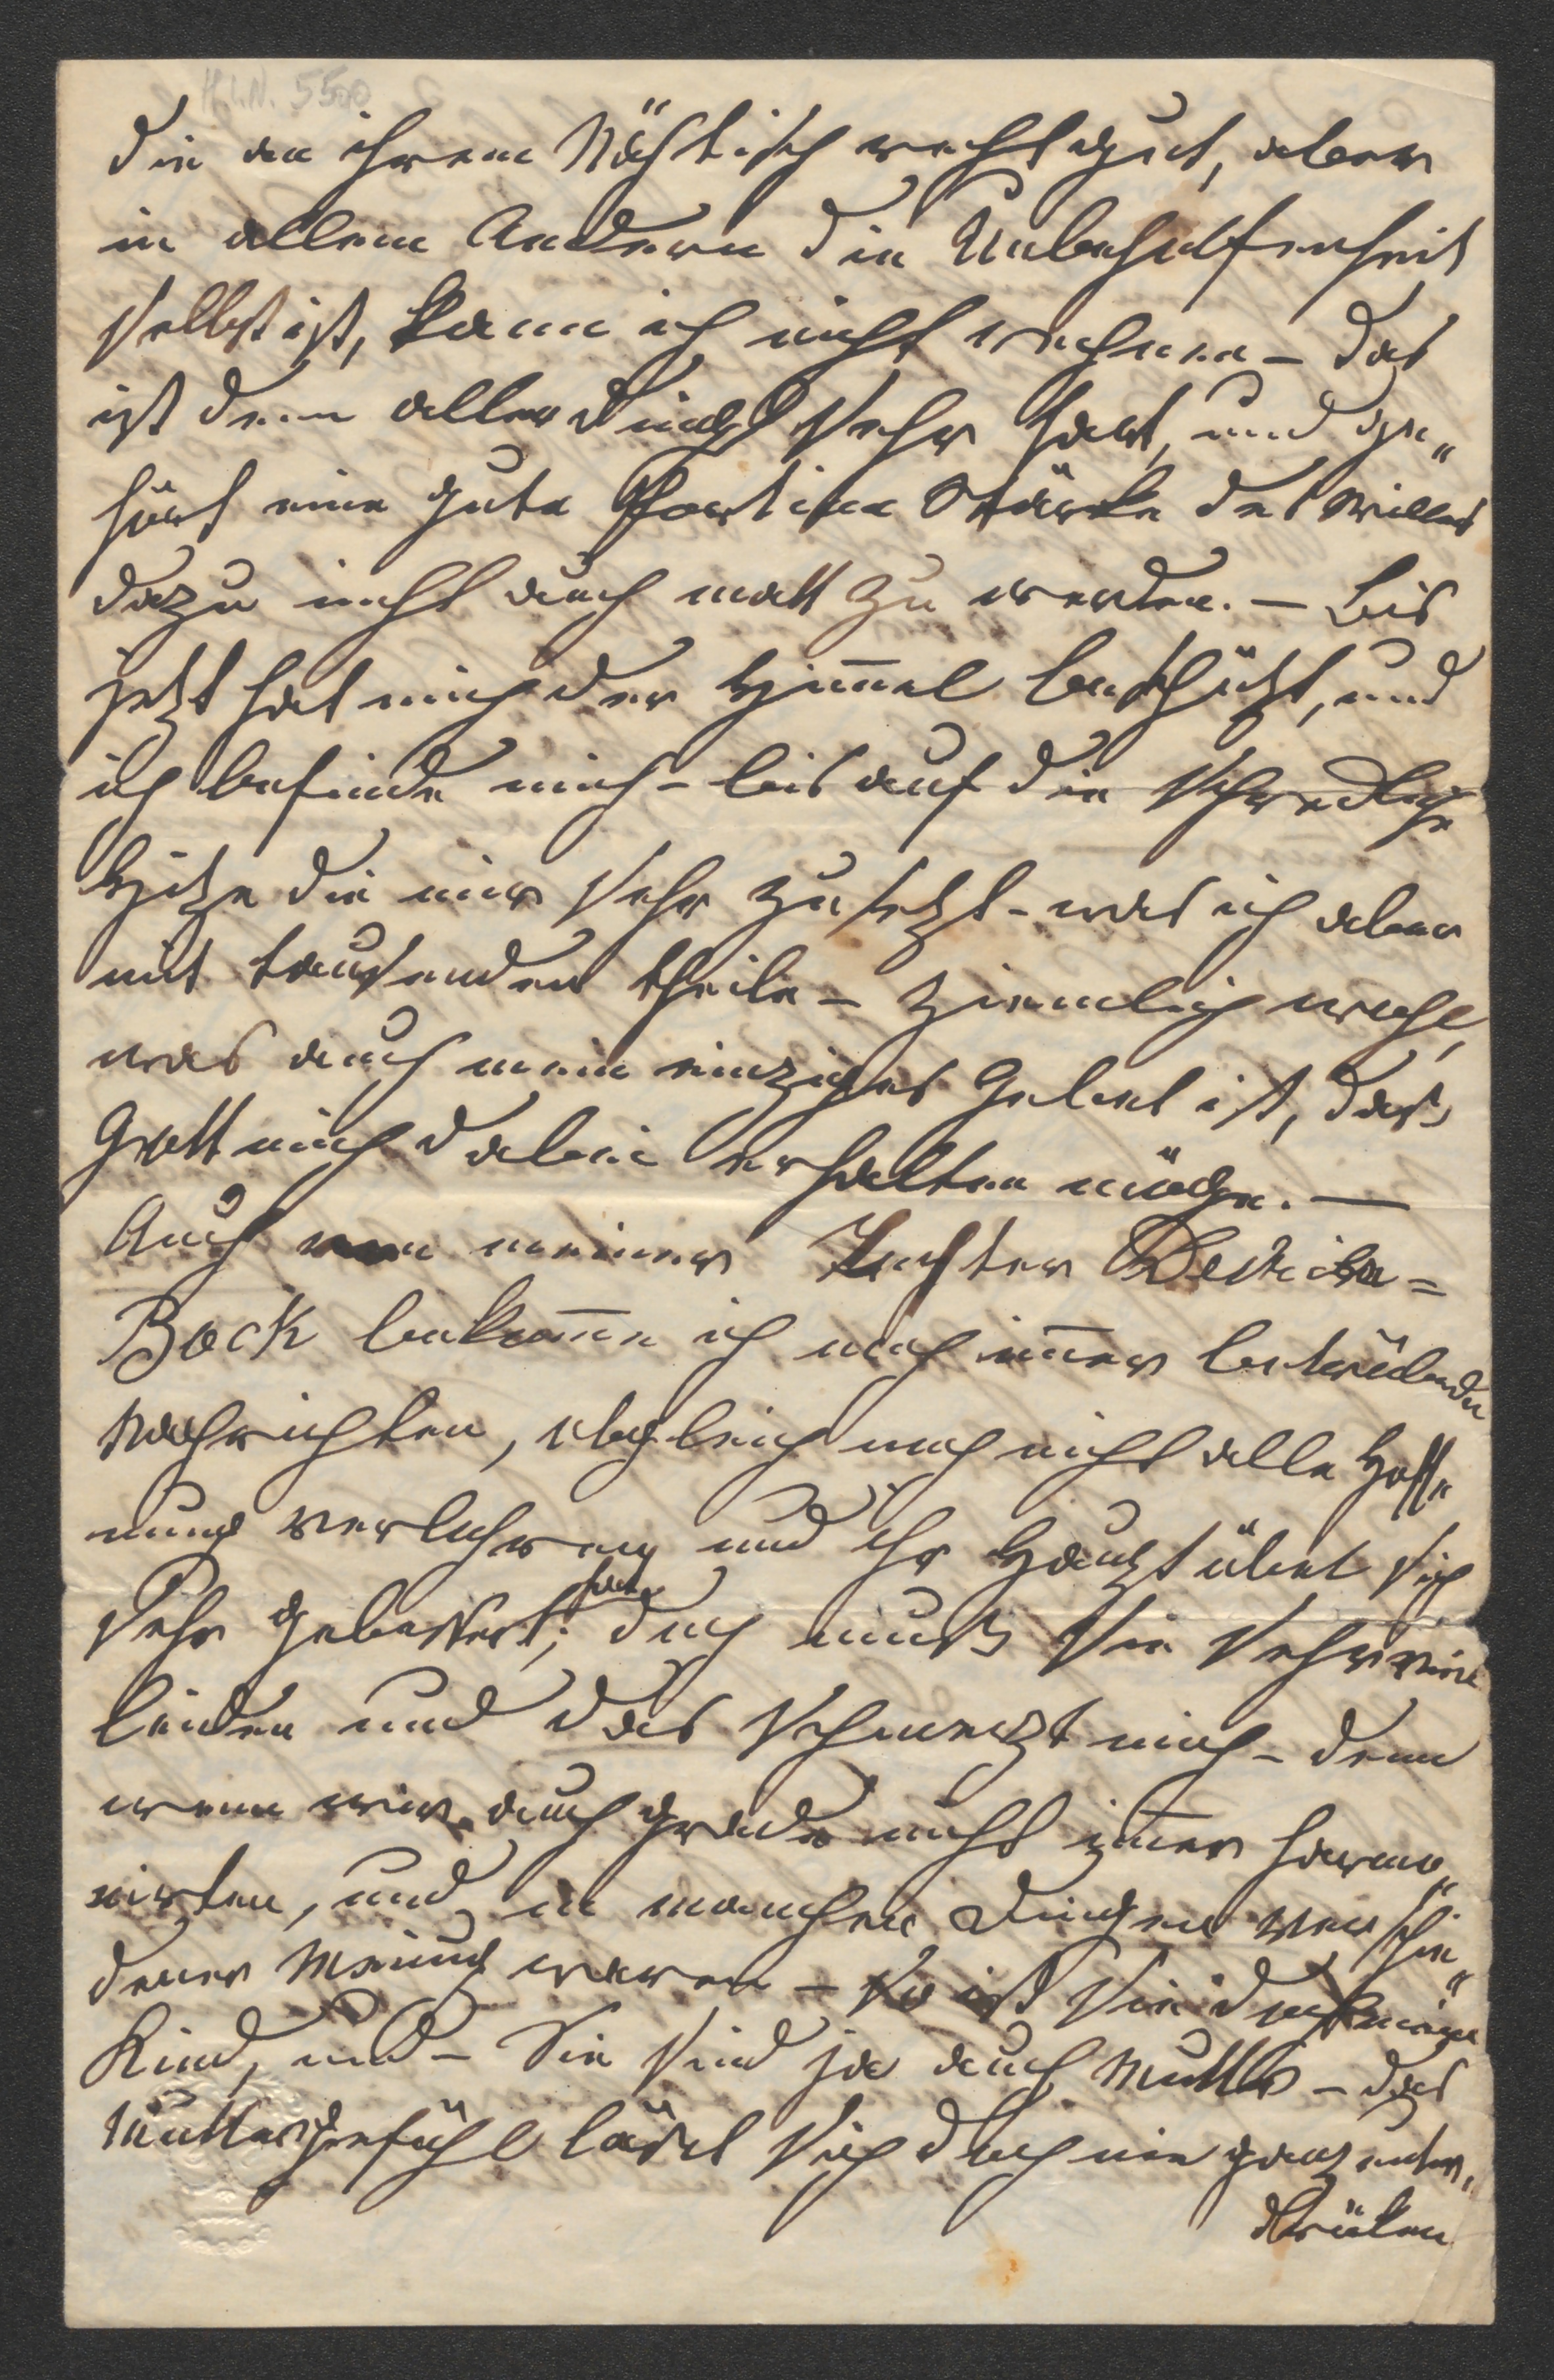 H.I.N. 5500
die an ihrem Nähtisch recht gut, aber
in allem Andern die Unbeholfenheit
selbst ist, kann ich nicht rechnen – das
ist denn allerdings sehr hart, und ge„
hört eine gute Portion Stärke des Willens
dazu nicht auch matt zu werden. – Bis
jetzt hat mich der Him̄el beschützt, und
ich befinde mich – bis auf die schreckliche
Hitze die mir sehr zusetzt – was ich aber
mit tausenden theile – ziemlich wohl,
was auch mein einziges Gebet ist, dass
Gott mich dabei erhalten möge. —
Auch von meiner Tochter
Bock bekom̄e ich noch im̄er betrübende
Nachrichten, obgleich noch nicht alle Hoff„
nung verlohren und ihr Hauptübel sich
sehr gebessert hat; doch muß sie sehr viel
leiden und das schmerzt mich – denn
wenn wir auch grade nicht im̄er harmo„
nirten, und in manchen Dingen verschie„
dener Meinung waren – so ist sie doch mein
Kind, und – Sie sind ja auch Mutter – das
Muttergefühl läset sich doch nie ganz unter„
drüken